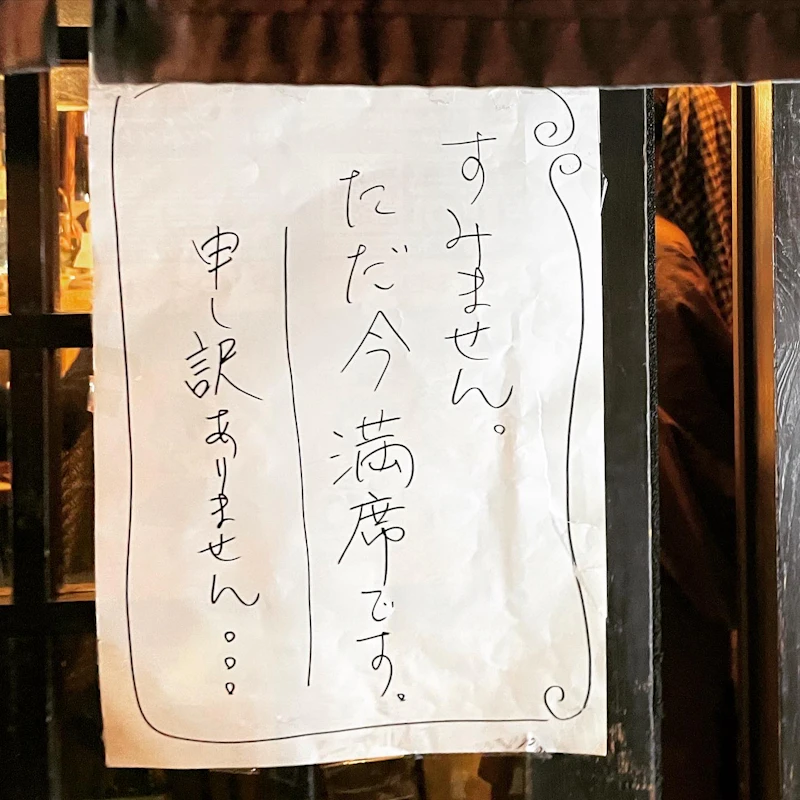 すみません。
ただ今満席です。
申し訳ありません。。。